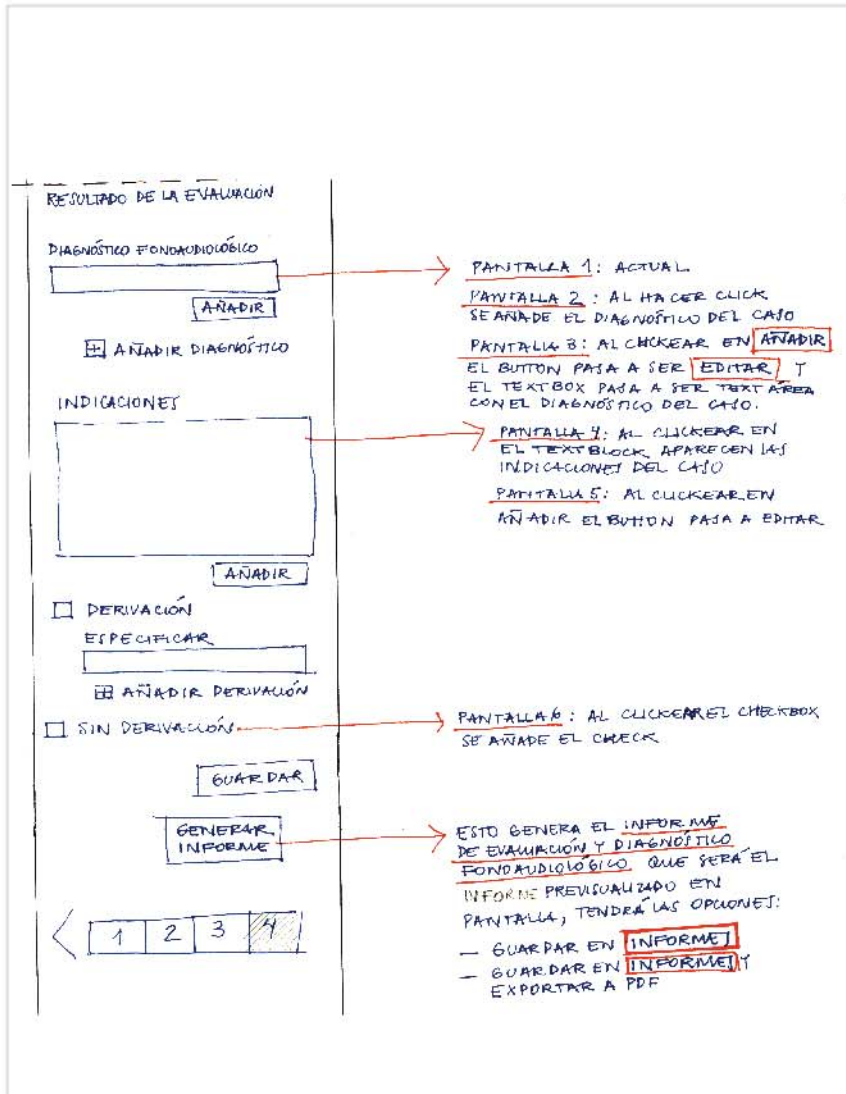 RESULTADO DE LA EVALUACIÓN
DIAGNÓSTICO FONOAUDIOLÓGICO
AÑADIR
AÑADIR DIAGNÓSTICO
INDICACIONES
AÑADIR
DERIVACIÓN
ESPECIFICAR
AÑADIR DERIVACIÓN
SIN DERIVACIÓN
GUARDAR
GENERAR
INFORME
1 2 3 4
PANTALLA 1: ACTUAL
PANTALLA 2: AL HACER CLICK
SE AÑADE EL DIAGNÓSTICO DEL CASO
PANTALLA 3: AL CLICKEAR EN AÑADIR
EL BUTTON PASA A SER EDITAR Y
EL TEXTBOX PASA A SER TEXT ÁREA
CON EL DIAGNÓSTICO DEL CASO.
PANTALLA 4: AL CLICKEAR EN
EL TEXTBLOCK APARECEN LAS
INDICACIONES DEL CASO
PANTALLA 5: AL CLICKEAR EN
AÑADIR EL BUTTON PASA A EDITAR
PANTALLA 6: AL CLICKEAR EL CHECKBOX
SE AÑADE EL CHECK
ESTO GENERA EL INFORME
DE EVALUACIÓN Y DIAGNÓSTICO
FONOAUDIOLÓGICO QUE SERÁ EL
INFORME PREVISUALIZADO EN
PANTALLA, TENDRÁ LAS OPCIONES:
— GUARDAR EN INFORMES
— GUARDAR EN INFORMES Y
EXPORTAR A PDF